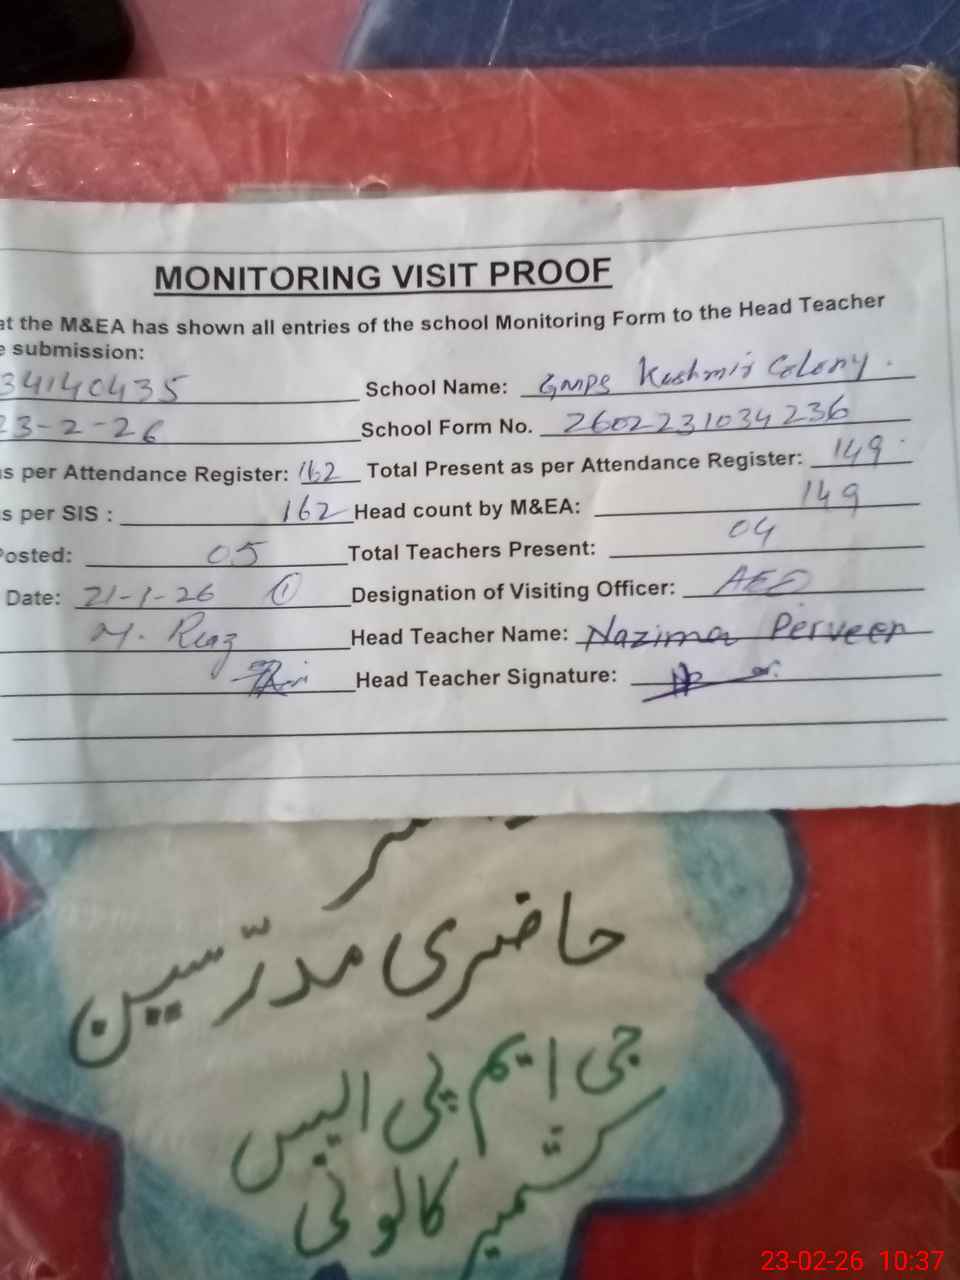 MONITORING VISIT PROOF
at the M&EA has shown all entries of the school Monitoring Form to the Head Teacher
submission:
34140435 School Name: GMPS Kashmir Colony.
23-2-26 School Form No. 2602231034236
as per Attendance Register: 162 Total Present as per Attendance Register: 149
as per SIS : 162 Head count by M&EA: 149
Posted: 05 Total Teachers Present: 04
Date: 21-1-26 ① Designation of Visiting Officer: AEO
M. Riaz Head Teacher Name: Nazima Perveen
Head Teacher Signature:
حاضری مدرّسین
جی ایم پی ایس
کشمیر کالونی
23-02-26 10:37